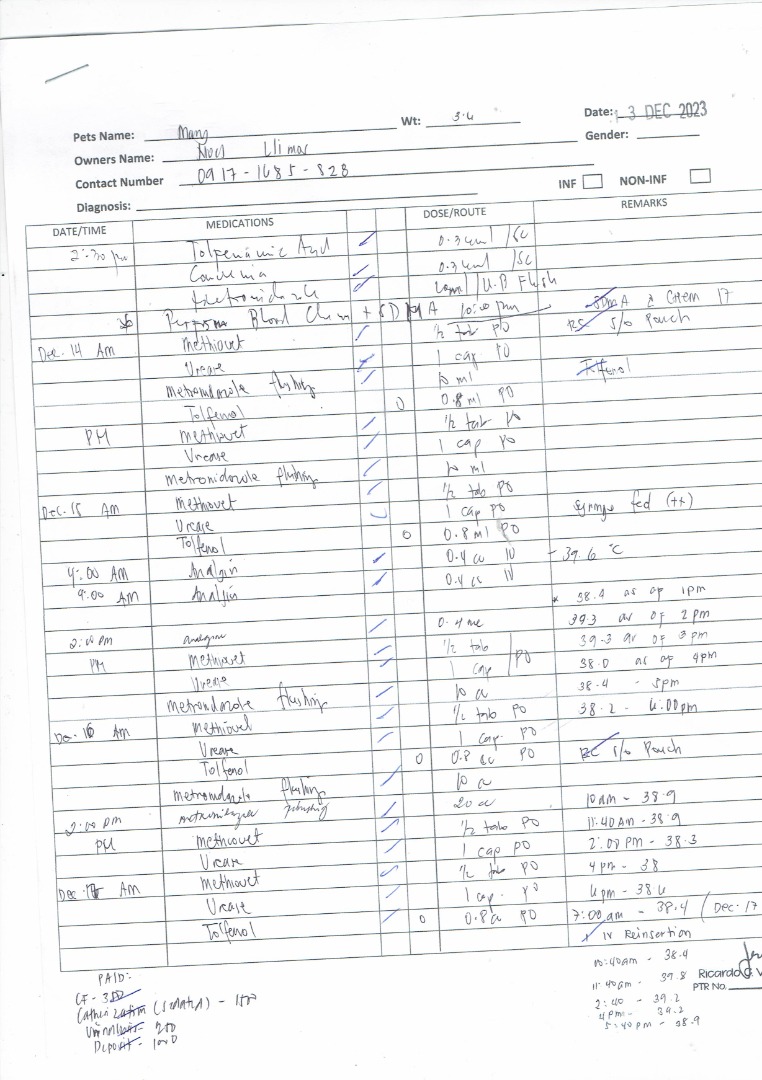 Date: 13 DEC 2023
Pets Name: Mary Wt: 3.4
Gender:
Owners Name: Noel Llimas
Contact Number 0917-1685-828
INF NON-INF
Diagnosis:
DATE/TIME MEDICATIONS DOSE/ROUTE REMARKS
2:30 pm Tolfenamic Acid 0.34ml /SC
0.34ml /SC
Metronidazole U.B Flush
Perform Blood Chem + SDMA 10:00 pm SDMA & Chem 17
Dec. 14 AM Methiovet 1/2 tab PO s/o Pouch
Urease 1 cap PO
Metronidazole flushing 10 ml Tolfenol
Tolfenol 0 0.8 ml PO
PM Methiovet 1/2 tab PO
Urease 1 cap PO
Metronidazole flushing 10 ml
Dec. 15 AM Methiovet 1/2 tab PO
Urease 1 cap PO Syringe fed (++)
Tolfenol 0 0.8 ml PO
4:00 AM Analgin 0.4 cc IV - 39.6 °C
9:00 AM Analgin 0.4 cc IV
* 38.4 as of 1pm
2:00 pm analgin 0.4 39.3 as of 2pm
PM Methiovet 1/2 tab /PO 39.3 as of 3pm
Urease 1 cap 38.0 as of 4pm
Metronidazole flushing 10 cc 38.4 - 5pm
Dec. 16 AM Methiovet 1/2 tab PO 38.2 - 6:00pm
Urease 1 cap. PO
Tolfenol 0 0.8 cc PO s/o Pouch
Metronidazole flushing 10 cc
2:00 pm metronidazole flushing 20 cc 10am - 38.9
PM Methiovet 1/2 tab PO 11:40AM - 38.9
Urease 1 cap PO 2:00 PM - 38.3
Dec 17 AM Methiovet 1/2 tab PO 4pm - 38
Urease 1 cap. PO 6pm - 38.6
Tolfenol 0 0.8 cc PO 7:00am - 38.4 / Dec. 17
IV Reinsertion
10:40am - 38.4
11:40am - 39.8
2:40 - 39.2
4pm - 39.2
5:40pm - 38.9
Ricardo G. V
PTR No.
PAID:
CF - 350
(Sedated) - 1500
Urinalysis - 200
Deposit - 1000